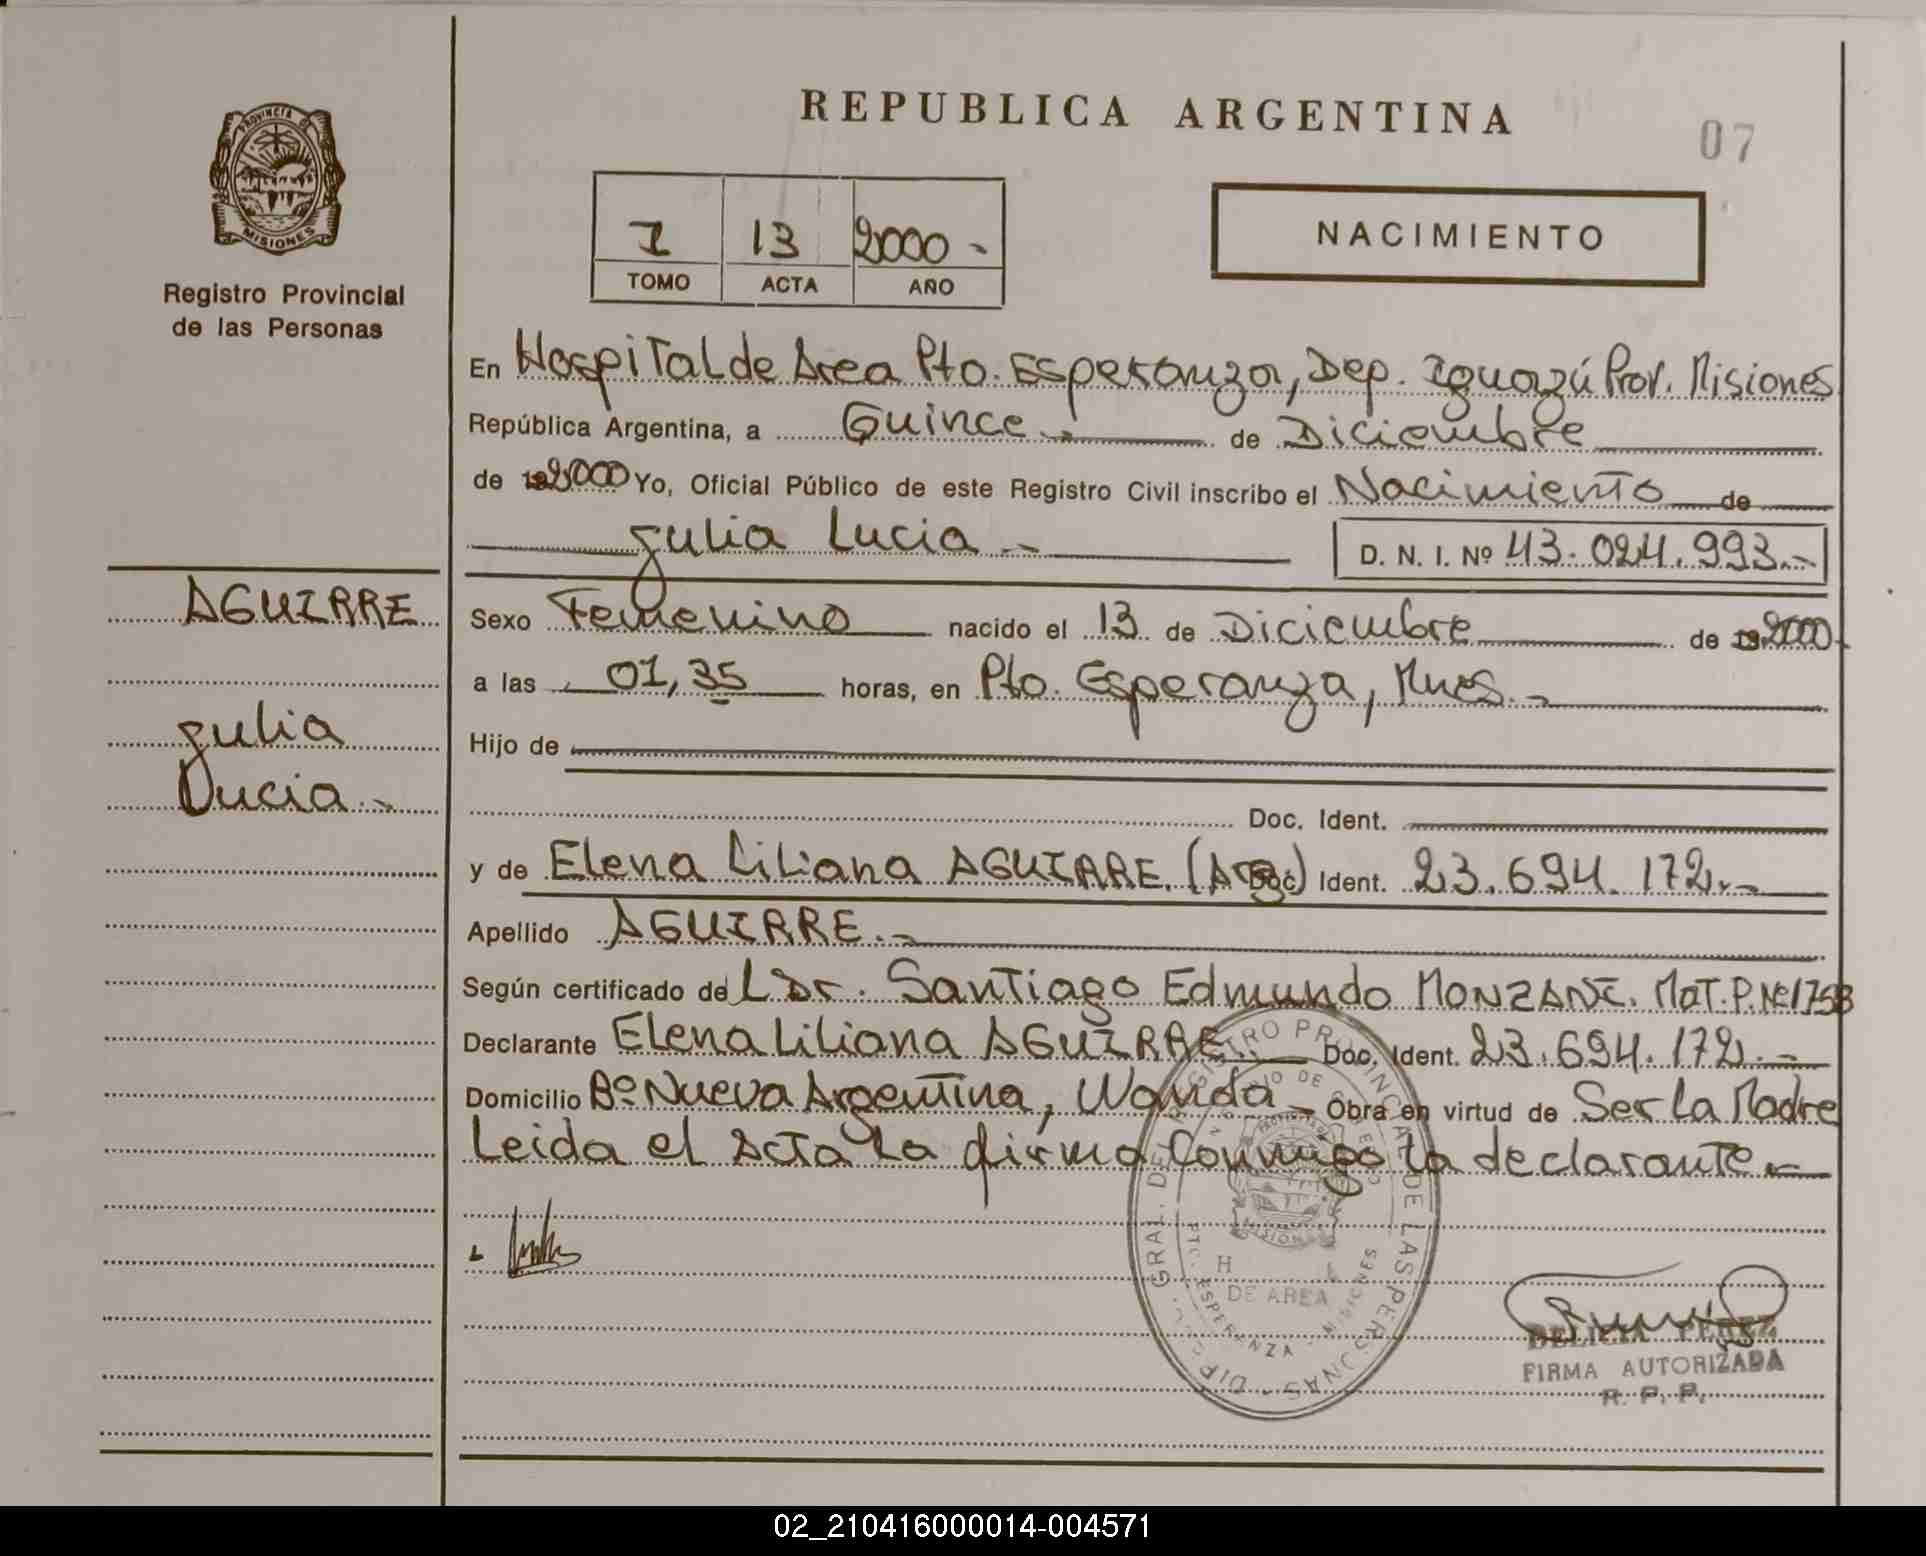 REPUBLICA ARGENTINA
07
PROVINCIA DE
MISIONES
Registro Provincial
de las Personas
I 13 2000-
TOMO ACTA AÑO
NACIMIENTO
En Hospital de Area Pto. Esperanza, Dep. Iguazú Prov. Misiones
República Argentina, a Quince.- de Diciembre
de 2000 Yo, Oficial Público de este Registro Civil inscribo el Nacimiento de
Julia Lucia.-
D. N. I. Nº 43.024.993.-
AGUIRRE
Julia
Lucia.-
Sexo Femenino nacido el 13 de Diciembre de 2000
a las 01,35 horas, en Pto. Esperanza, Mnes.-
Hijo de
Doc. Ident.
y de Elena Liliana AGUIRRE. (Arg) Doc. Ident. 23.694.172.-
Apellido AGUIRRE.-
Según certificado del Dr. Santiago Edmundo MONZANI. Mat. P. Nº 1758
Declarante Elena Liliana AGUIRRE.- Doc. Ident. 23.694.172.-
Domicilio Bº Nueva Argentina, Wanda.- Obra en virtud de Ser la Madre
Leida el Acta la firma conmigo la declarante.-
GRAL. DEL REGISTRO PROVINCIAL DE LAS PERSONAS
DE AREA
PTO. ESPERANZA - MISIONES
DELICIA PEREZ
FIRMA AUTORIZADA
R. P. P.
02_210416000014-004571